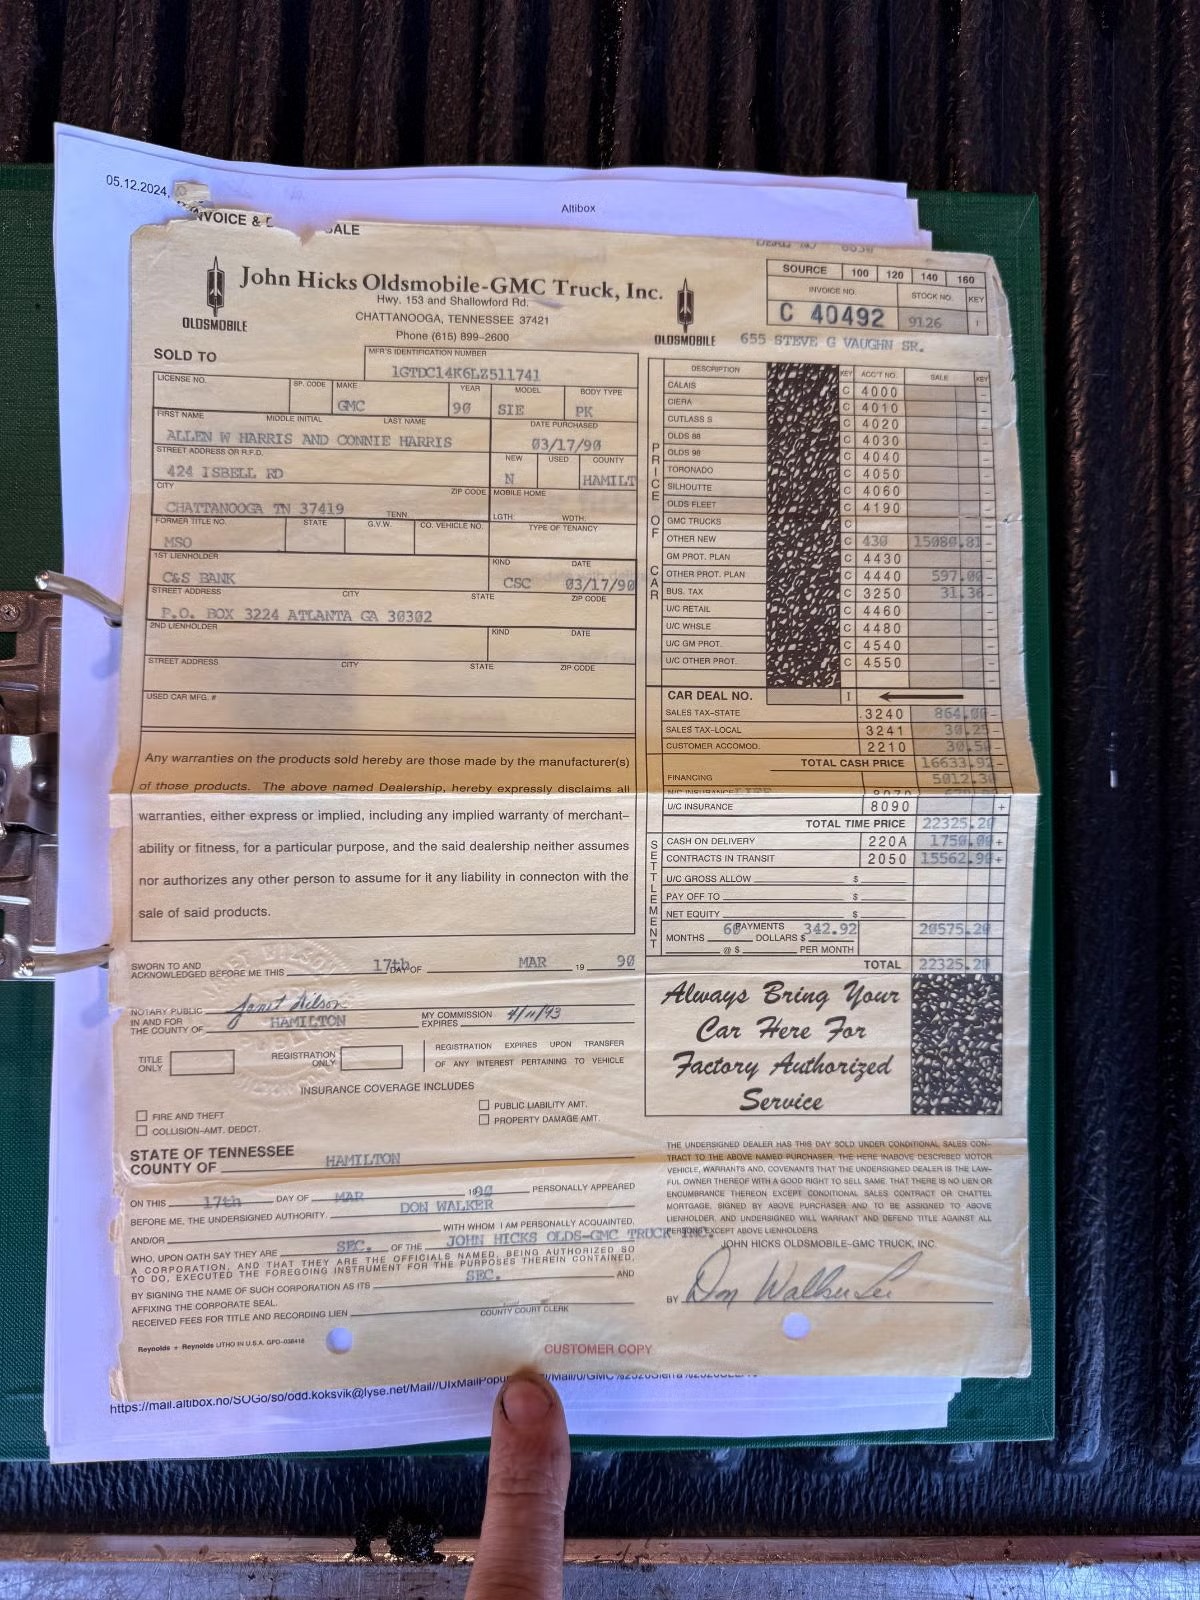 05.12.2024,
Altibox
NVOICE &
SALE
John Hicks Oldsmobile-GMC Truck, Inc.
Hwy. 153 and Shallowford Rd.
CHATTANOOGA, TENNESSEE 37421
Phone (615) 899-2600
OLDSMOBILE
OLDSMOBILE
SOURCE 100 120 140 160
INVOICE NO. STOCK NO. KEY
C 40492 9126 I
655 STEVE G VAUGHN SR.
SOLD TO
MFR'S IDENTIFICATION NUMBER
1GTDC14K6LZ511741
LICENSE NO. SP. CODE MAKE YEAR MODEL BODY TYPE
GMC 90 SIE PK
FIRST NAME MIDDLE INITIAL LAST NAME DATE PURCHASED
ALLEN W HARRIS AND CONNIE HARRIS 03/17/90
STREET ADDRESS OR R.F.D. NEW USED COUNTY
424 ISBELL RD N HAMILT
CITY ZIP CODE MOBILE HOME
CHATTANOOGA TN 37419 TENN. LGTH: WDTH:
FORMER TITLE NO. STATE G.V.W. CO. VEHICLE NO. TYPE OF TENANCY
MSO
1ST LIENHOLDER KIND DATE
C&S BANK CSC 03/17/90
STREET ADDRESS CITY STATE ZIP CODE
P.O. BOX 3224 ATLANTA GA 30302
2ND LIENHOLDER KIND DATE
STREET ADDRESS CITY STATE ZIP CODE
USED CAR MFG. #
Any warranties on the products sold hereby are those made by the manufacturer(s)
of those products. The above named Dealership, hereby expressly disclaims all
warranties, either express or implied, including any implied warranty of merchant-
ability or fitness, for a particular purpose, and the said dealership neither assumes
nor authorizes any other person to assume for it any liability in connecton with the
sale of said products.
PRICE OF CAR
DESCRIPTION KEY ACC'T NO. SALE KEY
CALAIS C 4000
CIERA C 4010
CUTLASS S C 4020
OLDS 88 C 4030
OLDS 98 C 4040
TORONADO C 4050
SILHOUTTE C 4060
OLDS FLEET C 4190
GMC TRUCKS C
OTHER NEW C 430 15080.81 -
GM PROT. PLAN C 4430
OTHER PROT. PLAN C 4440 597.00 -
BUS. TAX C 3250 31.36 -
U/C RETAIL C 4460
U/C WHSLE C 4480
U/C GM PROT. C 4540
U/C OTHER PROT. C 4550
CAR DEAL NO. I
SALES TAX-STATE 3240 864.00 -
SALES TAX-LOCAL 3241 30.25 -
CUSTOMER ACCOMOD. 2210 30.50 -
TOTAL CASH PRICE 16633.92 -
FINANCING 5012.30
U/C INSURANCE 8090 +
TOTAL TIME PRICE 22325.20
SETTLEMENT
CASH ON DELIVERY 220A 1750.00 +
CONTRACTS IN TRANSIT 2050 15562.90 +
U/C GROSS ALLOW $
PAY OFF TO $
NET EQUITY $
60 PAYMENTS 342.92 20575.20
MONTHS DOLLARS $
@ $ PER MONTH
TOTAL 22325.20
Always Bring Your
Car Here For
Factory Authorized
Service
SWORN TO AND
ACKNOWLEDGED BEFORE ME THIS 17th DAY OF MAR 19 90
NOTARY PUBLIC Janet Wilson
IN AND FOR
THE COUNTY OF HAMILTON MY COMMISSION EXPIRES 4/11/93
TITLE ONLY REGISTRATION ONLY REGISTRATION EXPIRES UPON TRANSFER
OF ANY INTEREST PERTAINING TO VEHICLE
INSURANCE COVERAGE INCLUDES
FIRE AND THEFT PUBLIC LIABILITY AMT.
COLLISION-AMT. DEDCT. PROPERTY DAMAGE AMT.
STATE OF TENNESSEE
COUNTY OF HAMILTON
ON THIS 17th DAY OF MAR 1990 PERSONALLY APPEARED
BEFORE ME, THE UNDERSIGNED AUTHORITY. DON WALKER
AND/OR WITH WHOM I AM PERSONALLY ACQUAINTED,
WHO, UPON OATH SAY THEY ARE SEC. OF THE JOHN HICKS OLDS-GMC TRUCK INC.
A CORPORATION, AND THAT THEY ARE THE OFFICIALS NAMED, BEING AUTHORIZED SO
TO DO, EXECUTED THE FOREGOING INSTRUMENT FOR THE PURPOSES THEREIN CONTAINED,
BY SIGNING THE NAME OF SUCH CORPORATION AS ITS SEC. AND
AFFIXING THE CORPORATE SEAL.
RECEIVED FEES FOR TITLE AND RECORDING LIEN COUNTY COURT CLERK
THE UNDERSIGNED DEALER HAS THIS DAY SOLD UNDER CONDITIONAL SALES CON-
TRACT TO THE ABOVE NAMED PURCHASER, THE HERE INABOVE DESCRIBED MOTOR
VEHICLE, WARRANTS AND, COVENANTS THAT THE UNDERSIGNED DEALER IS THE LAW-
FUL OWNER THEREOF WITH A GOOD RIGHT TO SELL SAME. THAT THERE IS NO LIEN OR
ENCUMBRANCE THEREON EXCEPT CONDITIONAL SALES CONTRACT OR CHATTEL
MORTGAGE, SIGNED BY ABOVE PURCHASER AND TO BE ASSIGNED TO ABOVE
LIENHOLDER, AND UNDERSIGNED WILL WARRANT AND DEFEND TITLE AGAINST ALL
PERSONS EXCEPT ABOVE LIENHOLDERS.
JOHN HICKS OLDSMOBILE-GMC TRUCK, INC.
BY Don Walker
Reynolds + Reynolds LITHO IN U.S.A. GPO-036416
CUSTOMER COPY
https://mail.altibox.no/SOGo/so/odd.koksvik@lyse.net/Mail//UIxMailPopu